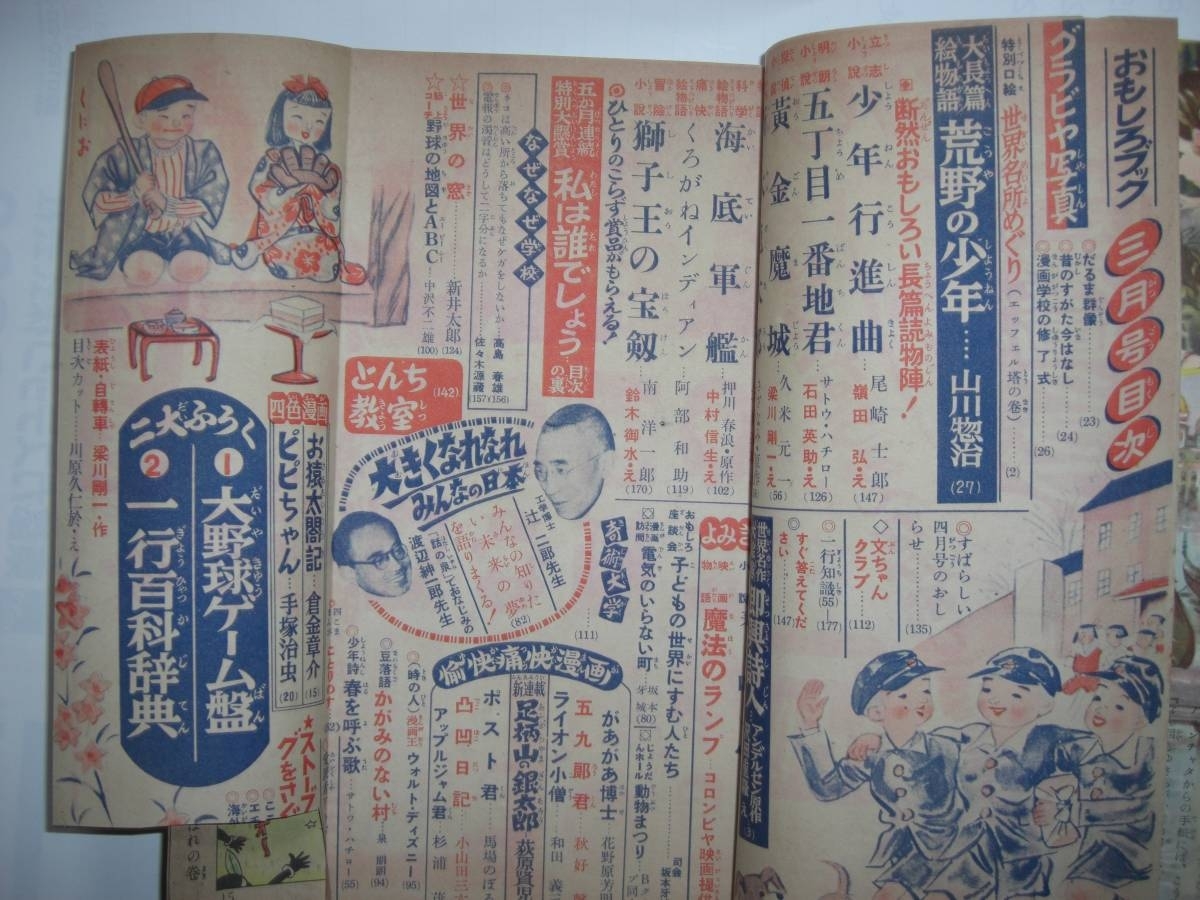 おもしろブック
三月号目次
グラビヤ写真
◎だるま群像 (23)
◎昔のすがた今はなし (24)
◎漫画学校の修了式 (26)
特別口絵 世界名所めぐり(エッフェル塔の巻) (2)
大長篇絵物語 荒野の少年 山川惣治 (27)
断然おもしろい長篇読物陣!
立志小説 少年行進曲 尾崎士郎 嶺田弘・え (147)
明朗小説 五丁目一番地君 サトウ・ハチロー 石田英助・え (126)
黄金魔城 久米元一 梁川剛一・え (56)
科学絵物語 海底軍艦 押川春浪・原作 中村信生・え (102)
痛快絵物語 くろがねインディアン 阿部和助 (119)
冒険小説 獅子王の宝剱 南洋一郎 鈴木御水・え (170)
◎ひとりのこらず賞品がもらえる!
五か月連続特別大懸賞 私は誰でしょう 目次の裏
なぜなぜ学校
ネコは高い所から落ちてもなぜケガをしないか 高島春雄 (156)
電報の濁音はどうして二字分になるか 佐々木源蔵 (157)
☆世界の窓 新井太郎 (124)
☆野球の地図とABC 中沢不二雄 (100)
とんち教室 (142)
大きくなれなれみんなの日本
工学博士 辻二郎先生
「話の泉」でおなじみの 渡辺紳一郎先生
みんなの知りたい未来の夢を語りまくる! (82)
奇術大学 (111)
◎すばらしい四月号のおしらせ (135)
◇文ちゃんクラブ (112)
◎一行知識 (55) (177)
◎すぐ答えてください (147)
世界名作 即興詩人 アンデルセン原作 (3)
よみき
映画物語 魔法のランプ コロンビヤ映画提供
おもしろ座談会 子どもの世界にすむ人たち 司会 坂本牙
漫画訪問 電気のいらない町 坂本牙城 (80)
じょうだんホール 動物まつり
愉快痛快漫画
があがあ博士 花野原芳明
五九郎君 秋好
ライオン小僧 和田義
新連載 足柄山の銀太郎 荻原賢
ポスト君 馬場のぼる
凸凹日記 小山田三
アップルジャム君 杉浦
(時の人) 漫画王ウォルト・ディズニー (95)
豆落語 かがみのない村 泉朋朗 (94)
少年詩 春を呼ぶ歌 サトウ・ハチロー (55)
四色漫画
お猿太閤記 倉金章介 (15)
ピピちゃん 手塚治虫 (20)
★ストーブ
グをさぐ
二大ふろく
1 大野球ゲーム盤
2 一行百科辞典
表紙・自轉車 梁川剛一・作
目次カット 川原久仁於・え
くにお